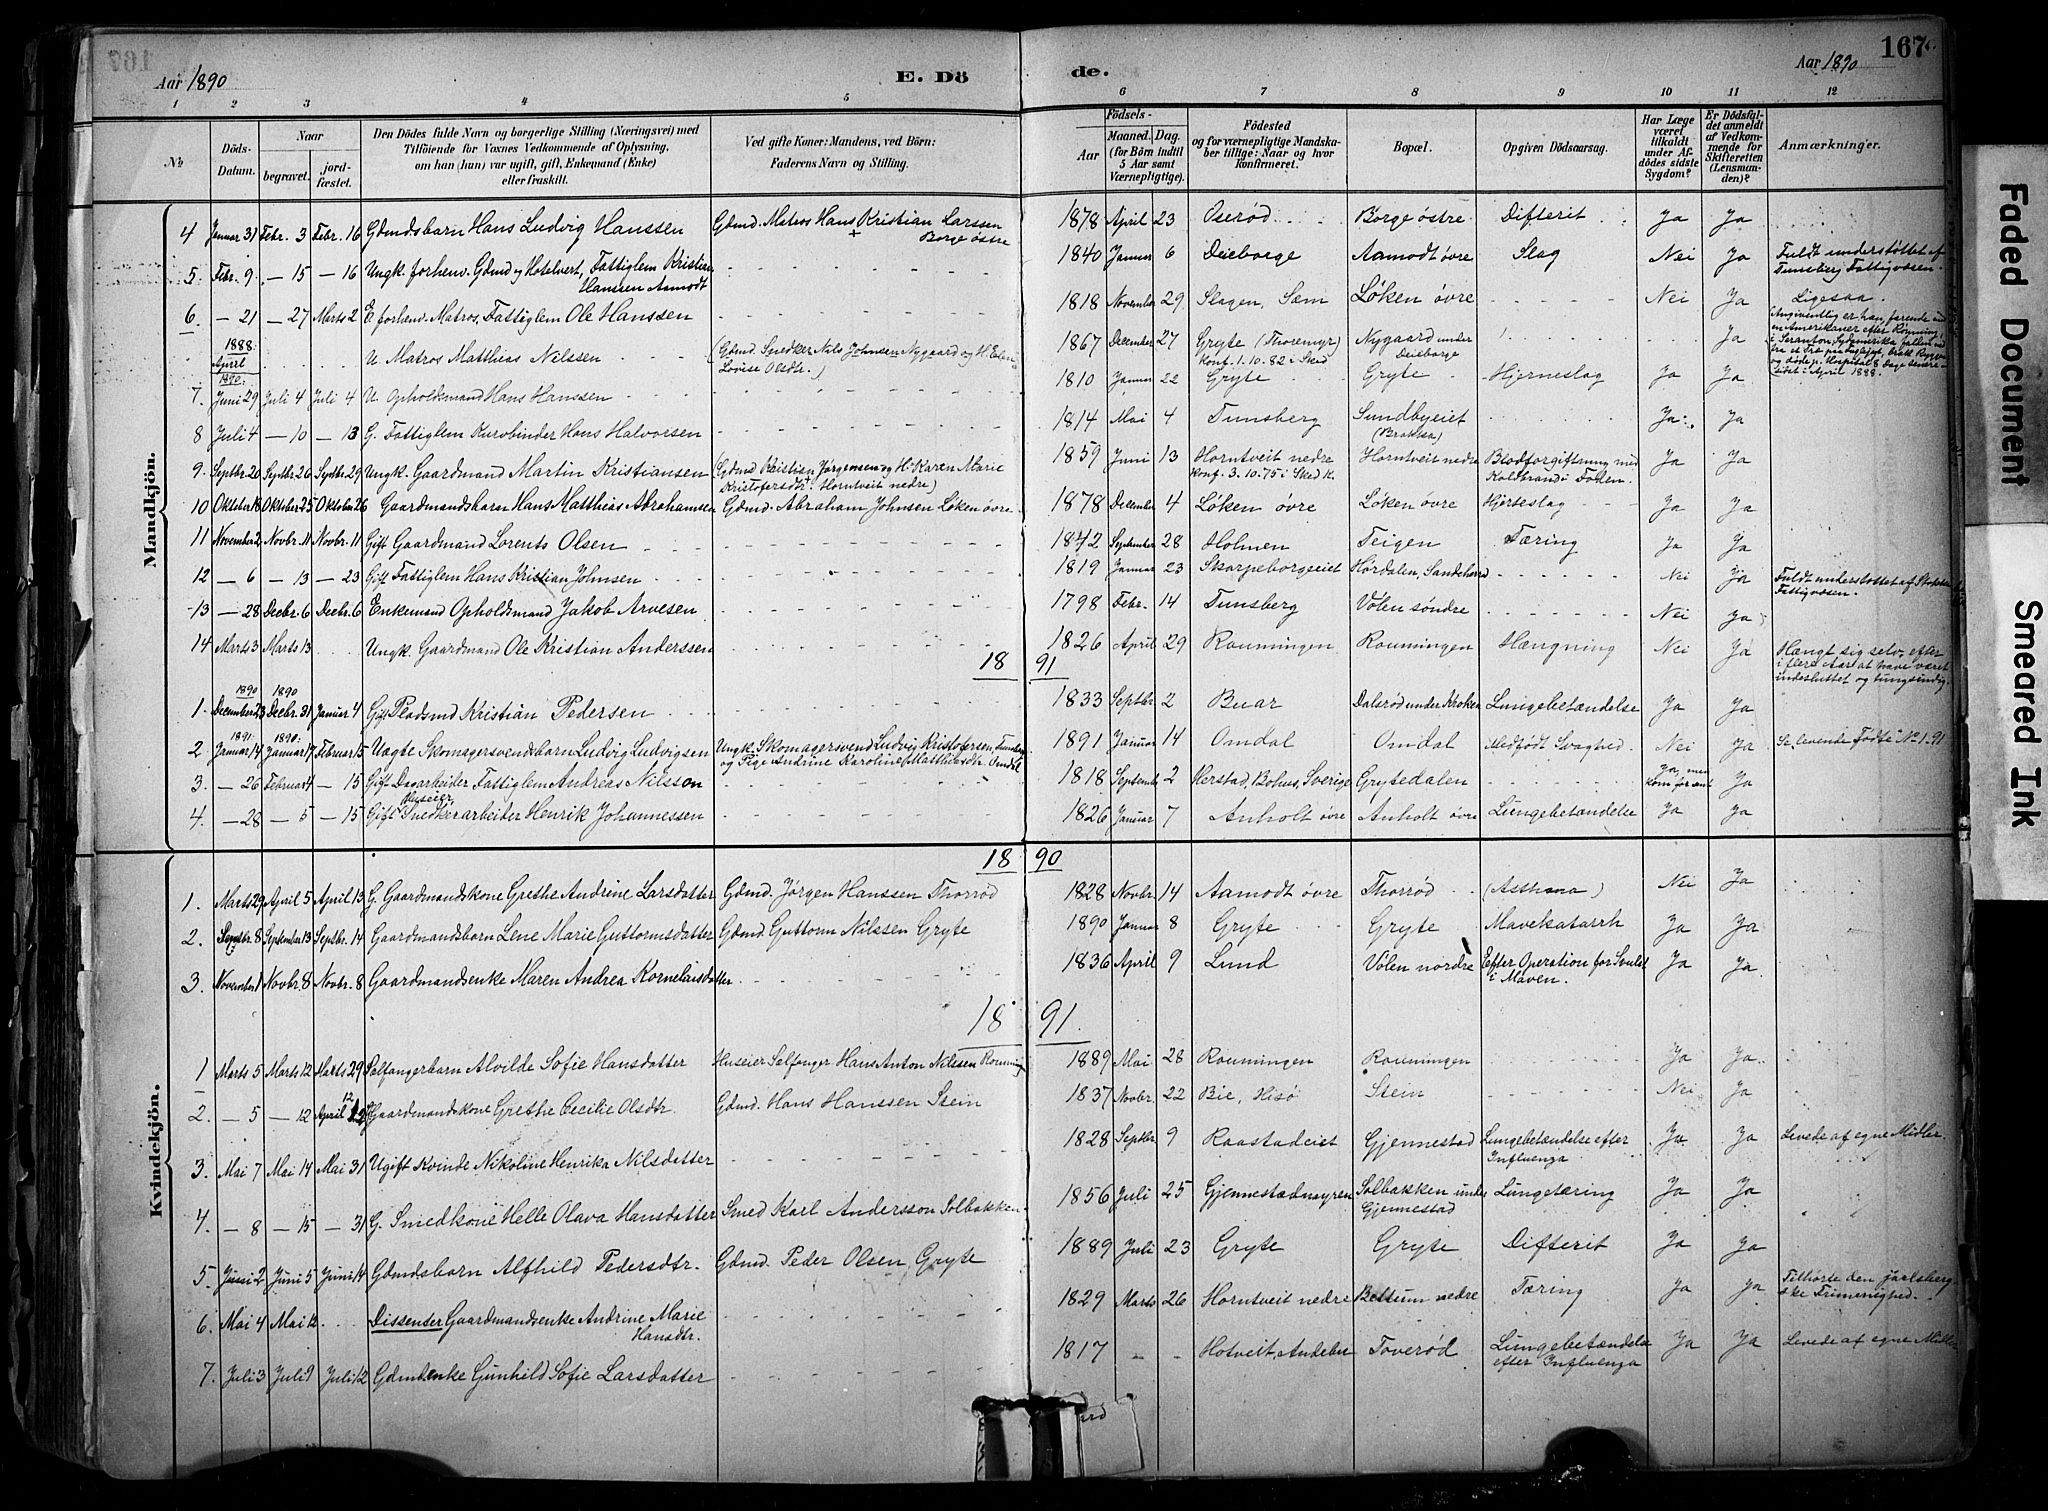 167
Aar 1890
E. Dö
de.
Aar 1890
1 2 3 4 5 6 7 8 9 10 11 12
No
Döds-
Datum.
Naar
begravet.
jord-
fæstet.
Den Dödes fulde Navn og borgerlige Stilling (Næringsvei) med
Tilföiende for Voxnes Vedkommende af Oplysning,
om han (hun) var ugift, gift, Enkemand (Enke)
eller fraskilt.
Ved gifte Koner: Mandens, ved Börn:
Faderens Navn og Stilling.
Födsels-
Aar
Maaned. Dag.
(for Börn indtil
5 Aar samt
Værnepligtige).
Födested
og for værnepligtige Mandska-
ber tillige: Naar og hvor
konfirmeret.
Bopæl.
Opgiven Dödsaarsag.
Har Læge
været
tilkaldt
under Af-
dödes sidste
Sygdom?
Er Dödsfal-
det anmeldt
af Vedkom-
mende for
Skifteretten
(Lensman-
den)?
Anmærkninger.
Mandkjön.
4 Januar 31 Febr. 3 Febr. 16 Gdmdsbarn Hans Ludvig Hanssen Gdmd. Matros Hans Kristian Larssen Borge östre 1878 April 23 Oserød Borge östre Difterit Ja Ja
5. Febr. 9. — 15 — 16 Ungk. forhenv. Gdmd og Hotelvert, Fattiglem Kristian Hanssen Aamodt 1840 Januar 6 Deieborge Aamodt övre Slag Nei Ja Fuldt understøttet af Tunsberg Fattigvæsen.
6. — 21 — 27 Marts 2 E. forhenv. Matros, Fattiglem Ole Hanssen 1818 November 29 Slagen, Sæm Løken övre Nei Ja Ligesaa.
1888: April U. Matros Matthias Nilssen (Gdmd. Snedker Nils Johnsen Nygaard og H. Ellen Lovise Olsdtr.) 1867 December 27 Gryte (Thoremyr) Konf. 1.10.82 i Sked Nygaard under Deieborge Ja Angiventlig er han, farende med en Amerikaner efter Rømning,
1890: 7. Juni 29 Juli 4 Juli 4 U. Opholdsmand Hans Hanssen 1810 Januar 22 Gryte Gryte Hjerneslag Ja Ja
8 Juli 4 — 10 — 13 G. Fattiglem Kurvbinder Hans Halvorsen 1814 Mai 4 Tunsberg Sundbyeiet (Brekka) Ja Ja
9. Septbr. 20 Septbr. 26 Septbr. 29 Ungk. Gaardmand Martin Kristiansen (Gdmd Kristian Jørgensen og H. Karen Marie Kristofersdtr. Horntveit nedre) 1859 Juni 13 Horntveit nedre Konf. 3.10.75 i Sked K. Horntveit nedre Blodforgiftning med Koldbrand i Foden. Ja Ja
10 Oktober 18 Oktober 25 Oktober 26 Gaardmandsbarn Hans Matthias Abrahamsen Gdmd. Abraham Johnsen Løken övre 1878 December 4 Løken övre Løken övre Hjerteslag Ja Ja
11 November 2 Novbr. 11 Novbr. 11 Gift Gaardmand Lorents Olsen 1842 September 28 Holmen Teigen Tæring Ja Ja
12 — 6 — 13 — 23 Gift Fattiglem Hans Kristian Johnsen 1819 Januar 23 Skorpeborgseiet Hørdalen, Sandeherred Nei Ja Fuldt understøttet af Stokke Fattigvæsen.
13 — 28 Decbr. 6 Decbr. 6 Enkemand Opholdsmand Jakob Arvesen 1798 Febr. 14 Tunsberg Volen söndre Nei Ja
14 Marts 3 Marts 13 Ungk. Gaardmand Ole Kristian Anderssen 1826 April 29 Rønningen Rønningen Hængning Nei Ja Hængt sig selv, efter i flere Aar at have været indesluttet og tungsindig.
18 91
1890 1890
1. December 23 Decbr. 31 Januar 4 Gift Pladsmd Kristian Pedersen 1833 Septbr. 2 Buar Dalerød under Kroken Lungebetændelse Ja Ja
1891. 1890.
2 Januar 14 Januar 17 Februar 15 Uægte Skomagersvendbarn Ludvig Ludvigsen Ungk. Skomagersvend Ludvig Kristofersen, Tunsberg og Pige Andrine Karoline Matthiasdtr. Omdal 1891 Januar 14 Omdal Omdal Medfödt Svaghed Nei Ja Se levende Födte No 1. 91
3. — 26 Februar 4 — 15 Gift Dagarbeider Fattiglem Andreas Nilsson 1818 September 2 Herstad, Bohus, Sverige Grytedalen Ja, men kom for sent Ja
4. — 28 — 5 — 15 Gift Huseier, Snedkerarbeider Henrik Johannessen 1826 Januar 7 Anholt övre Anholt övre Lungebetændelse Ja Ja
Kvindekjön.
18 90
1. Marts 29 April 5 April 13 G. Gaardmandskone Grethe Andrine Larsdatter Gdmd. Jörgen Hanssen Thorröd 1828 Novbr. 14 Aamodt övre Thorröd (Asthma) Nei Ja
2. Septbr. 8 September 13 Septbr. 14 Gaardmandsbarn Lene Marie Guttormsdatter Gdmd. Guttorm Nilssen Gryte 1890 Januar 8 Gryte Gryte Mavekatarrh Ja Ja
3. November 1 Novbr. 8 Novbr. 8 Gaardmandsenke Maren Andrea Korneliusdatter 1836 April 9 Lund Volen nordre Efter Operation for Svulst i Maven. Ja Ja
18 91.
1 Marts 5 Marts 12 Marts 29 Sælfangerbarn Alvilde Sofie Hansdatter Huseier Sælfanger Hans Anton Nilssen Rønning 1889 Mai 28 Rønningen Rønningen Ja Ja
2. — 5 — 12 April 12 Gaardmandskone Grethe Cecilie Olsdtr. Gdmd. Hans Hanssen Stein 1837 Novbr. 22 Bie, Hisö Stein Nei Ja
3. Mai 7 Mai 14 Mai 31 Ugift Kvinde Nikoline Henrika Nilsdatter 1828 Septbr. 9 Raastadeiet Gjennestad Lungebetændelse efter Influenza Ja Ja Levede af egne Midler.
4. — 8 — 15 — 31 G. Smedkone Helle Olava Hansdatter Smed Karl Andersson Solbakken 1856 Juli 25 Gjennestadmyren Solbakken under Gjennestad Lungetæring Ja Ja
5. Juni 2 Juni 5 Juni 14 Gdmdsbarn Alfhild Pedersdtr. Gdmd. Peder Olsen, Gryte 1889 Juli 23 Gryte Gryte Difterit Ja Ja
6. Mai 4 Mai 12 Dissenter Gaardmandsenke Andrine Marie Hansdtr. 1829 Marts 26 Horntveit nedre Bettum nedre Tæring Ja Ja Tilhørte den jarlsbergske Frimenighed.
7. Juli 3 Juli 9 Juli 12 Gdmdenke Gunhild Sofie Larsdatter 1817 — — Hotveit, Andebu Toveröd Lungebetændelse efter Influenza Ja Ja Levede af egne Midler
Faded Document
Smeared Ink